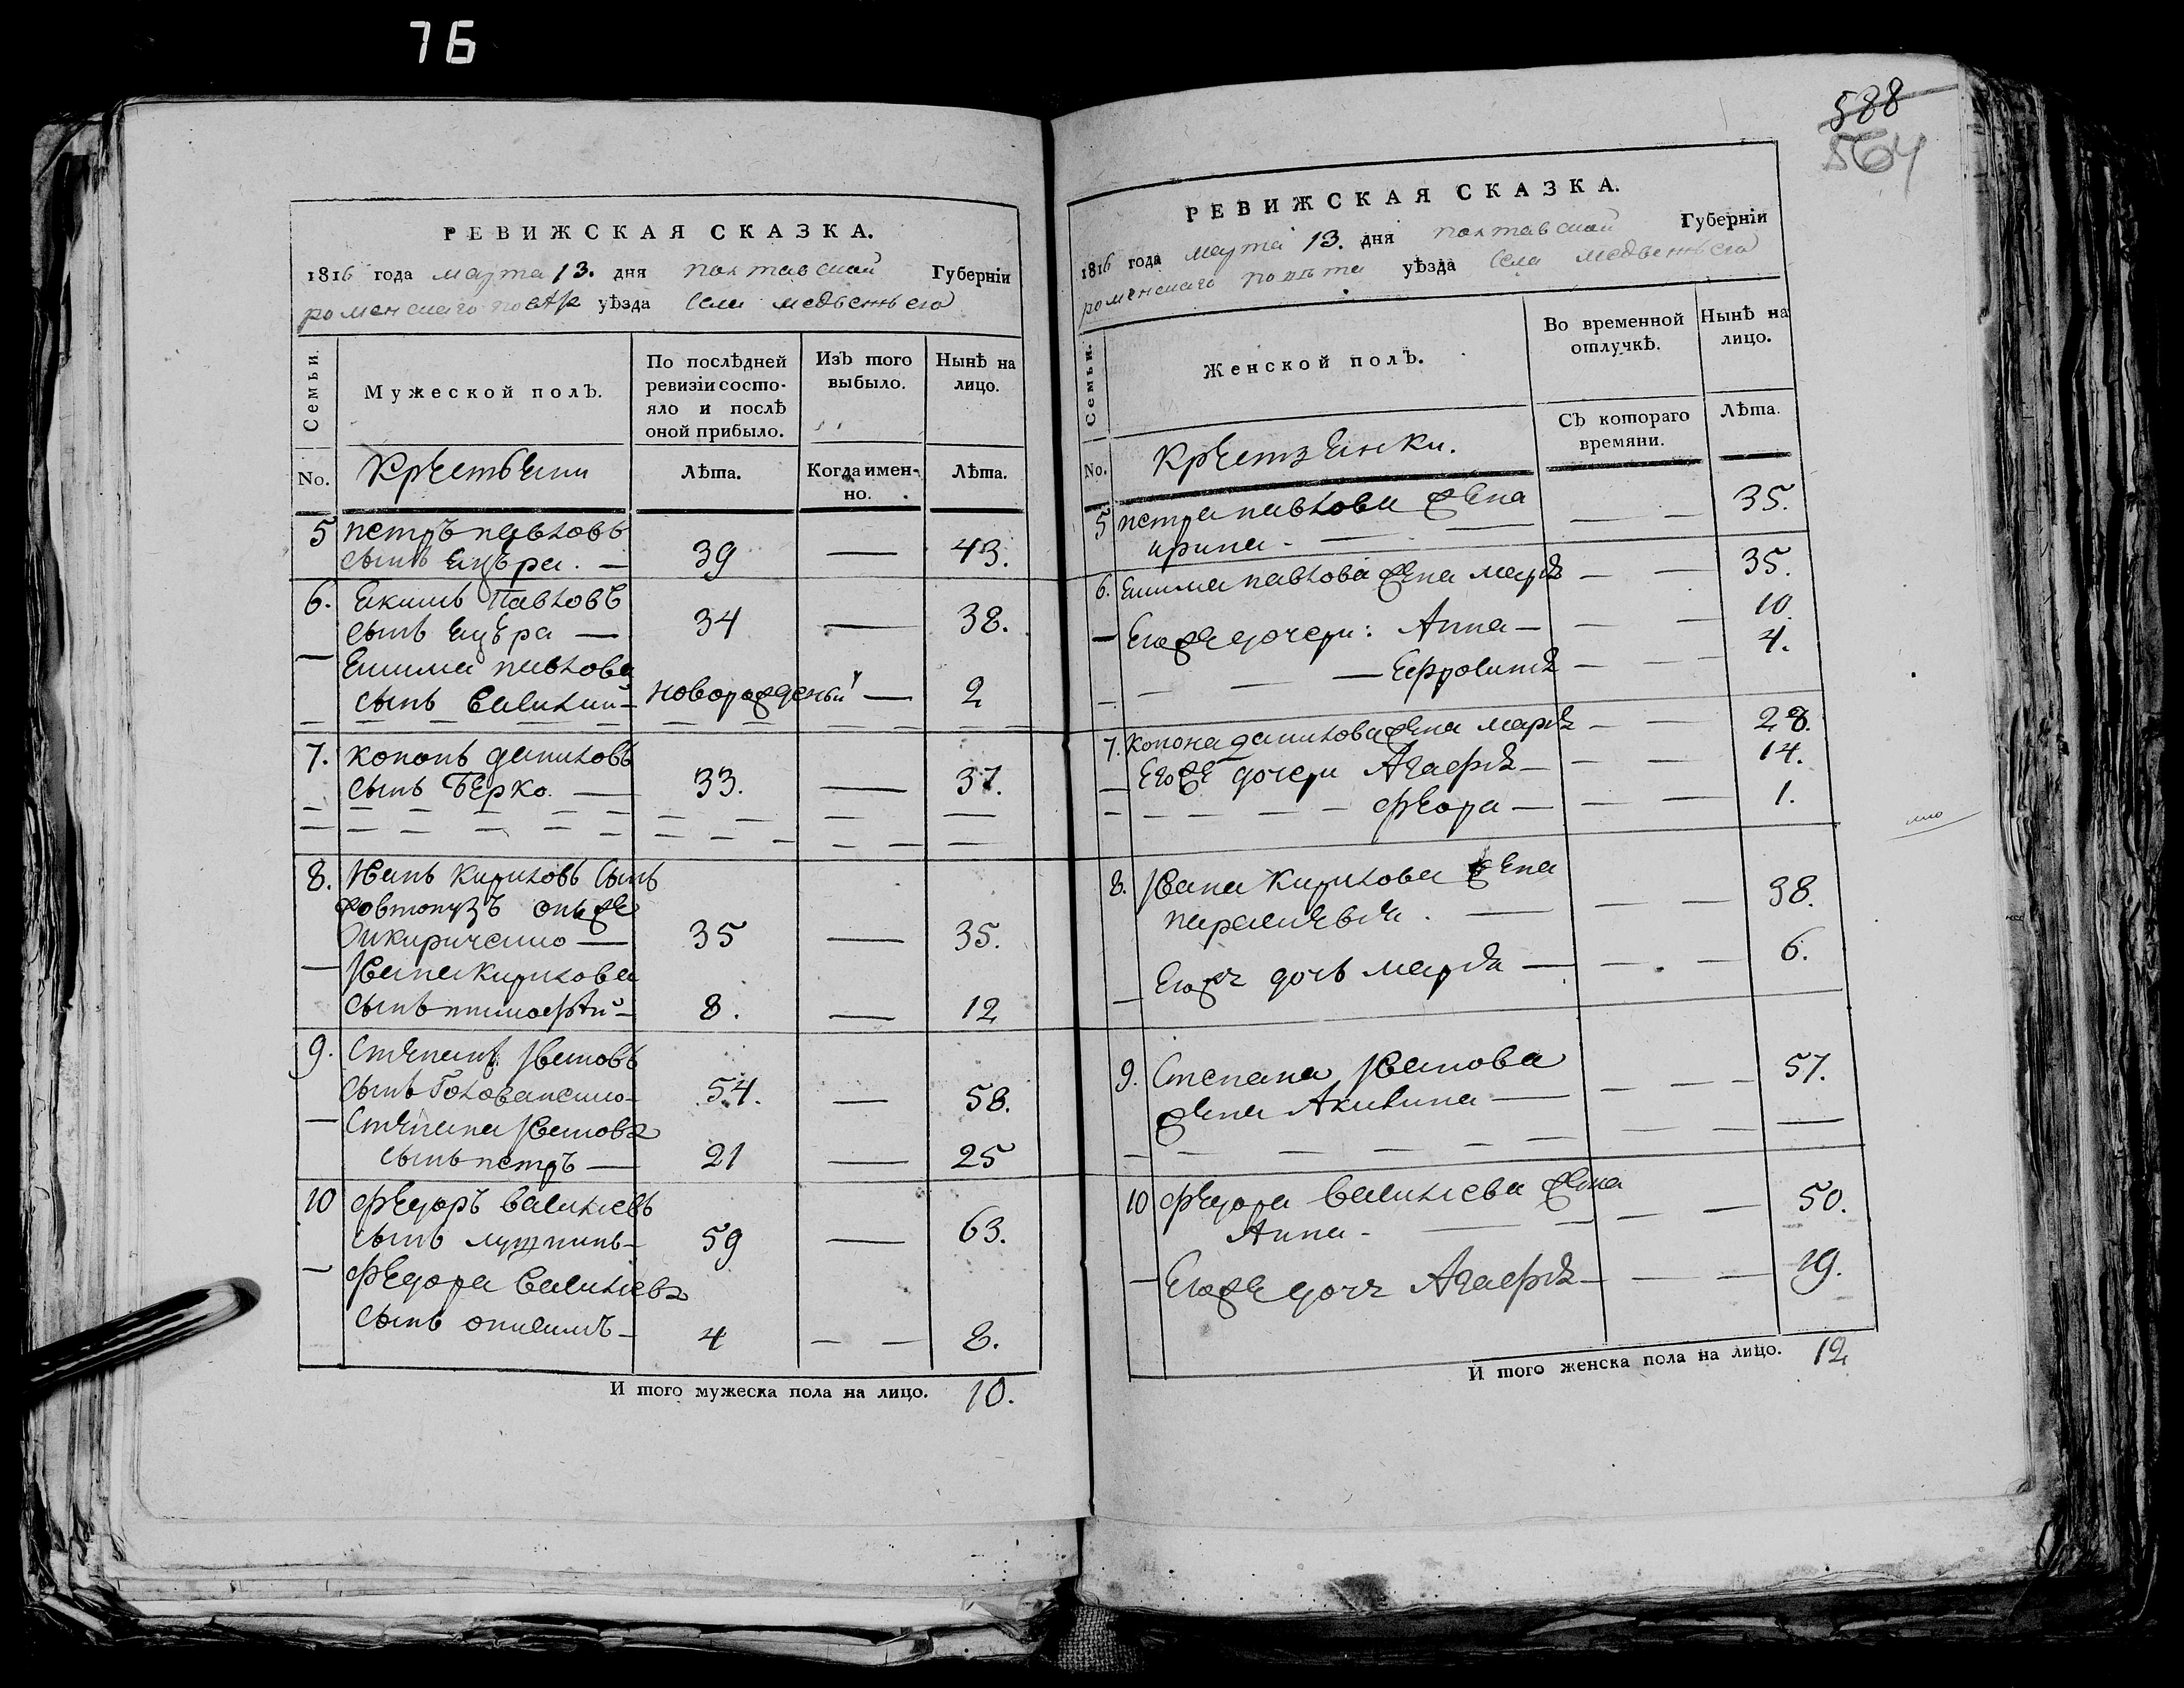 76
588
564
РЕВИЖСКАЯ СКАЗКА.
1816 года марта 13. дня полтавской Губерніи
роменскаго повѣта уѣзда села медвежьего
Семьи.
Мужеской полъ.
По послѣдней ревизіи состо-
яло и послѣ
оной прибыло.
Изъ того
выбыло.
Нынѣ на
лицо.
No.
Лѣта.
Когда имен-
но.
Лѣта.
5 петръ павловъ
сынъ — 39 — 43.
6. Екимъ Павловъ
сынъ — 34 — 38.
— Екима павлова
сынъ василий — новорожденый — 2
7. кононъ даниловъ
сынъ Берко. — 33. — 37.
8. Иванъ кириловъ сынъ
онъ же
кириченко — 35 — 35.
— Ивана кирилова
сынъ тимофѣй — 8. — 12
9. Степанъ Ивановъ
сынъ Голованенко — 54. — 58.
— Степана Иванова
сынъ петръ — 21 — 25
10 Федоръ васильевъ
сынъ — 59 — 63.
— Федора васильева
сынъ онисимъ — 4 — — 8.
И того мужеска пола на лицо. 10.
РЕВИЖСКАЯ СКАЗКА.
1816 года марта 13. дня полтавской Губерніи
роменскаго повѣта уѣзда села медвежьего
Семьи.
Женской полъ.
Во временной
отлучкѣ.
Нынѣ на
лицо.
No.
Съ котораго
времяни.
Лѣта.
5 петра павлова жена
ирина — — — 35.
6. Екима павлова жена марья — — 35.
— Егоже дочери: Анна — — — 10.
— — — Ефросиня — — — 4.
7. конона данилова жена марья — — 28.
— Егоже дочери Агафья — — — 14.
— — — — Феора — — — 1.
8. Ивана кирилова жена
парасковья. — — — 38.
— Егоже дочь марья — — — 6.
9. Степана Иванова
жена Акилина — — — — 57.
10 Федора васильева жена
Анна — — — 50.
— Егоже дочь Агафья — — — 19.
И того женска пола на лицо. 12